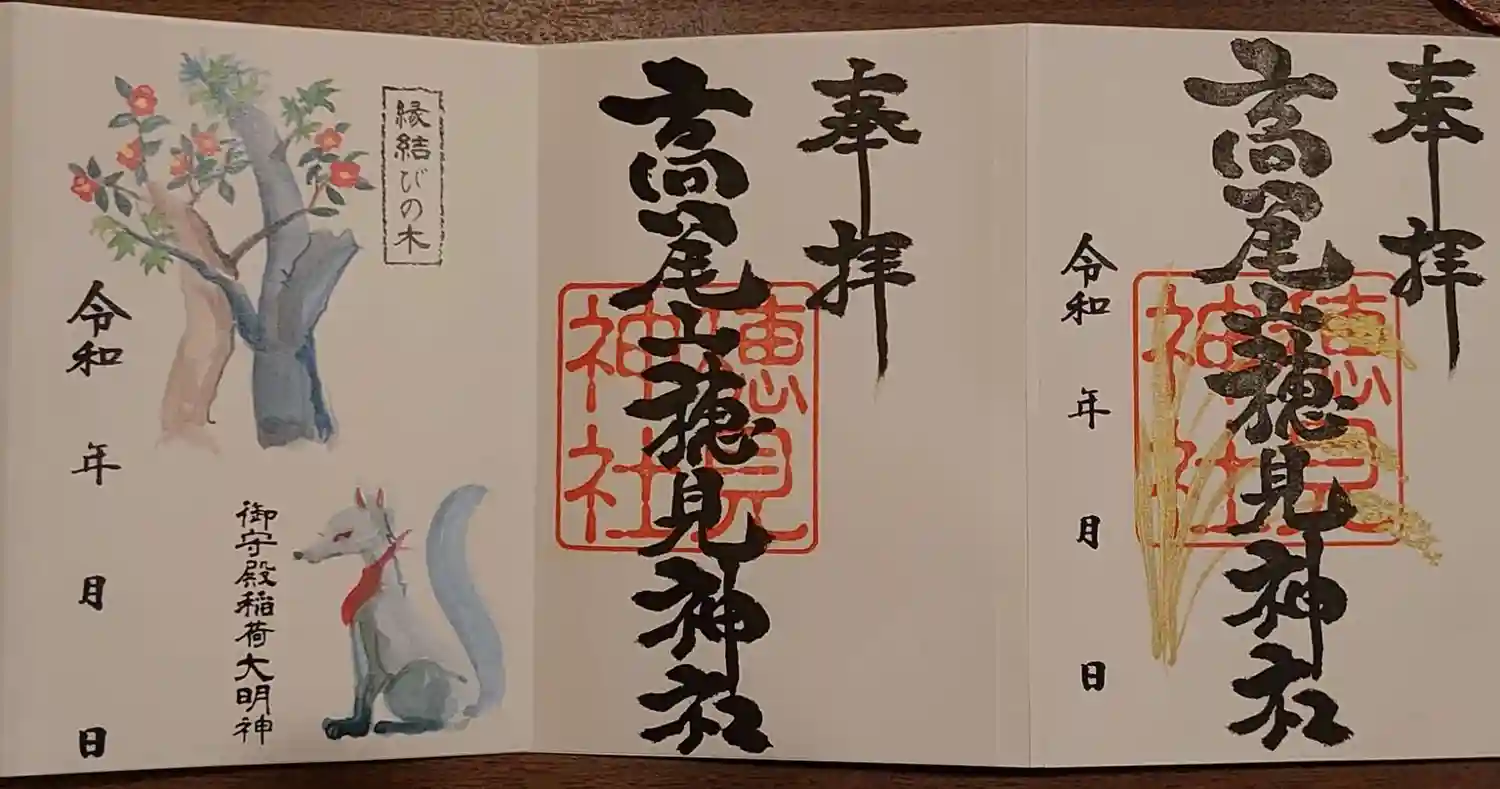 奉拝
高尾山穂見神社
令和 年 月 日
奉拝
高尾山穂見神社
穂見
神社
縁結びの木
御守殿稲荷大明神
令和 年 月 日